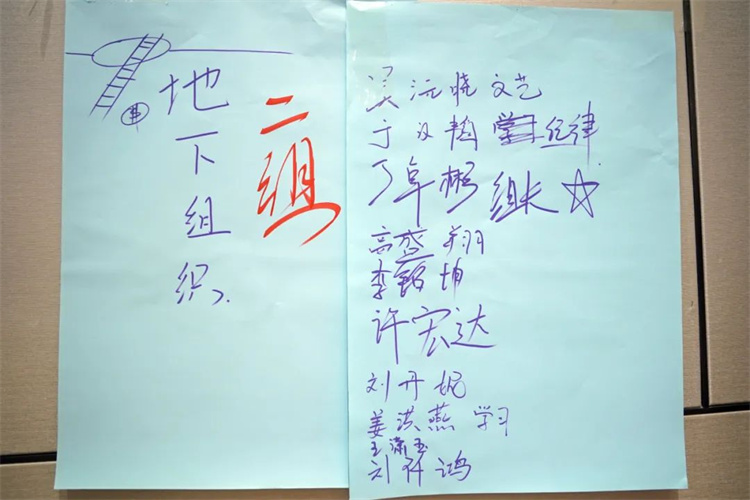 地下组织
二组
吴沅晓 文艺
于汉韬 纪律
丁卓彬 组长
高盛翔
李毅坤
许宏达
刘丹妮
姜洪燕 学习
王潇玉
刘梓鸿